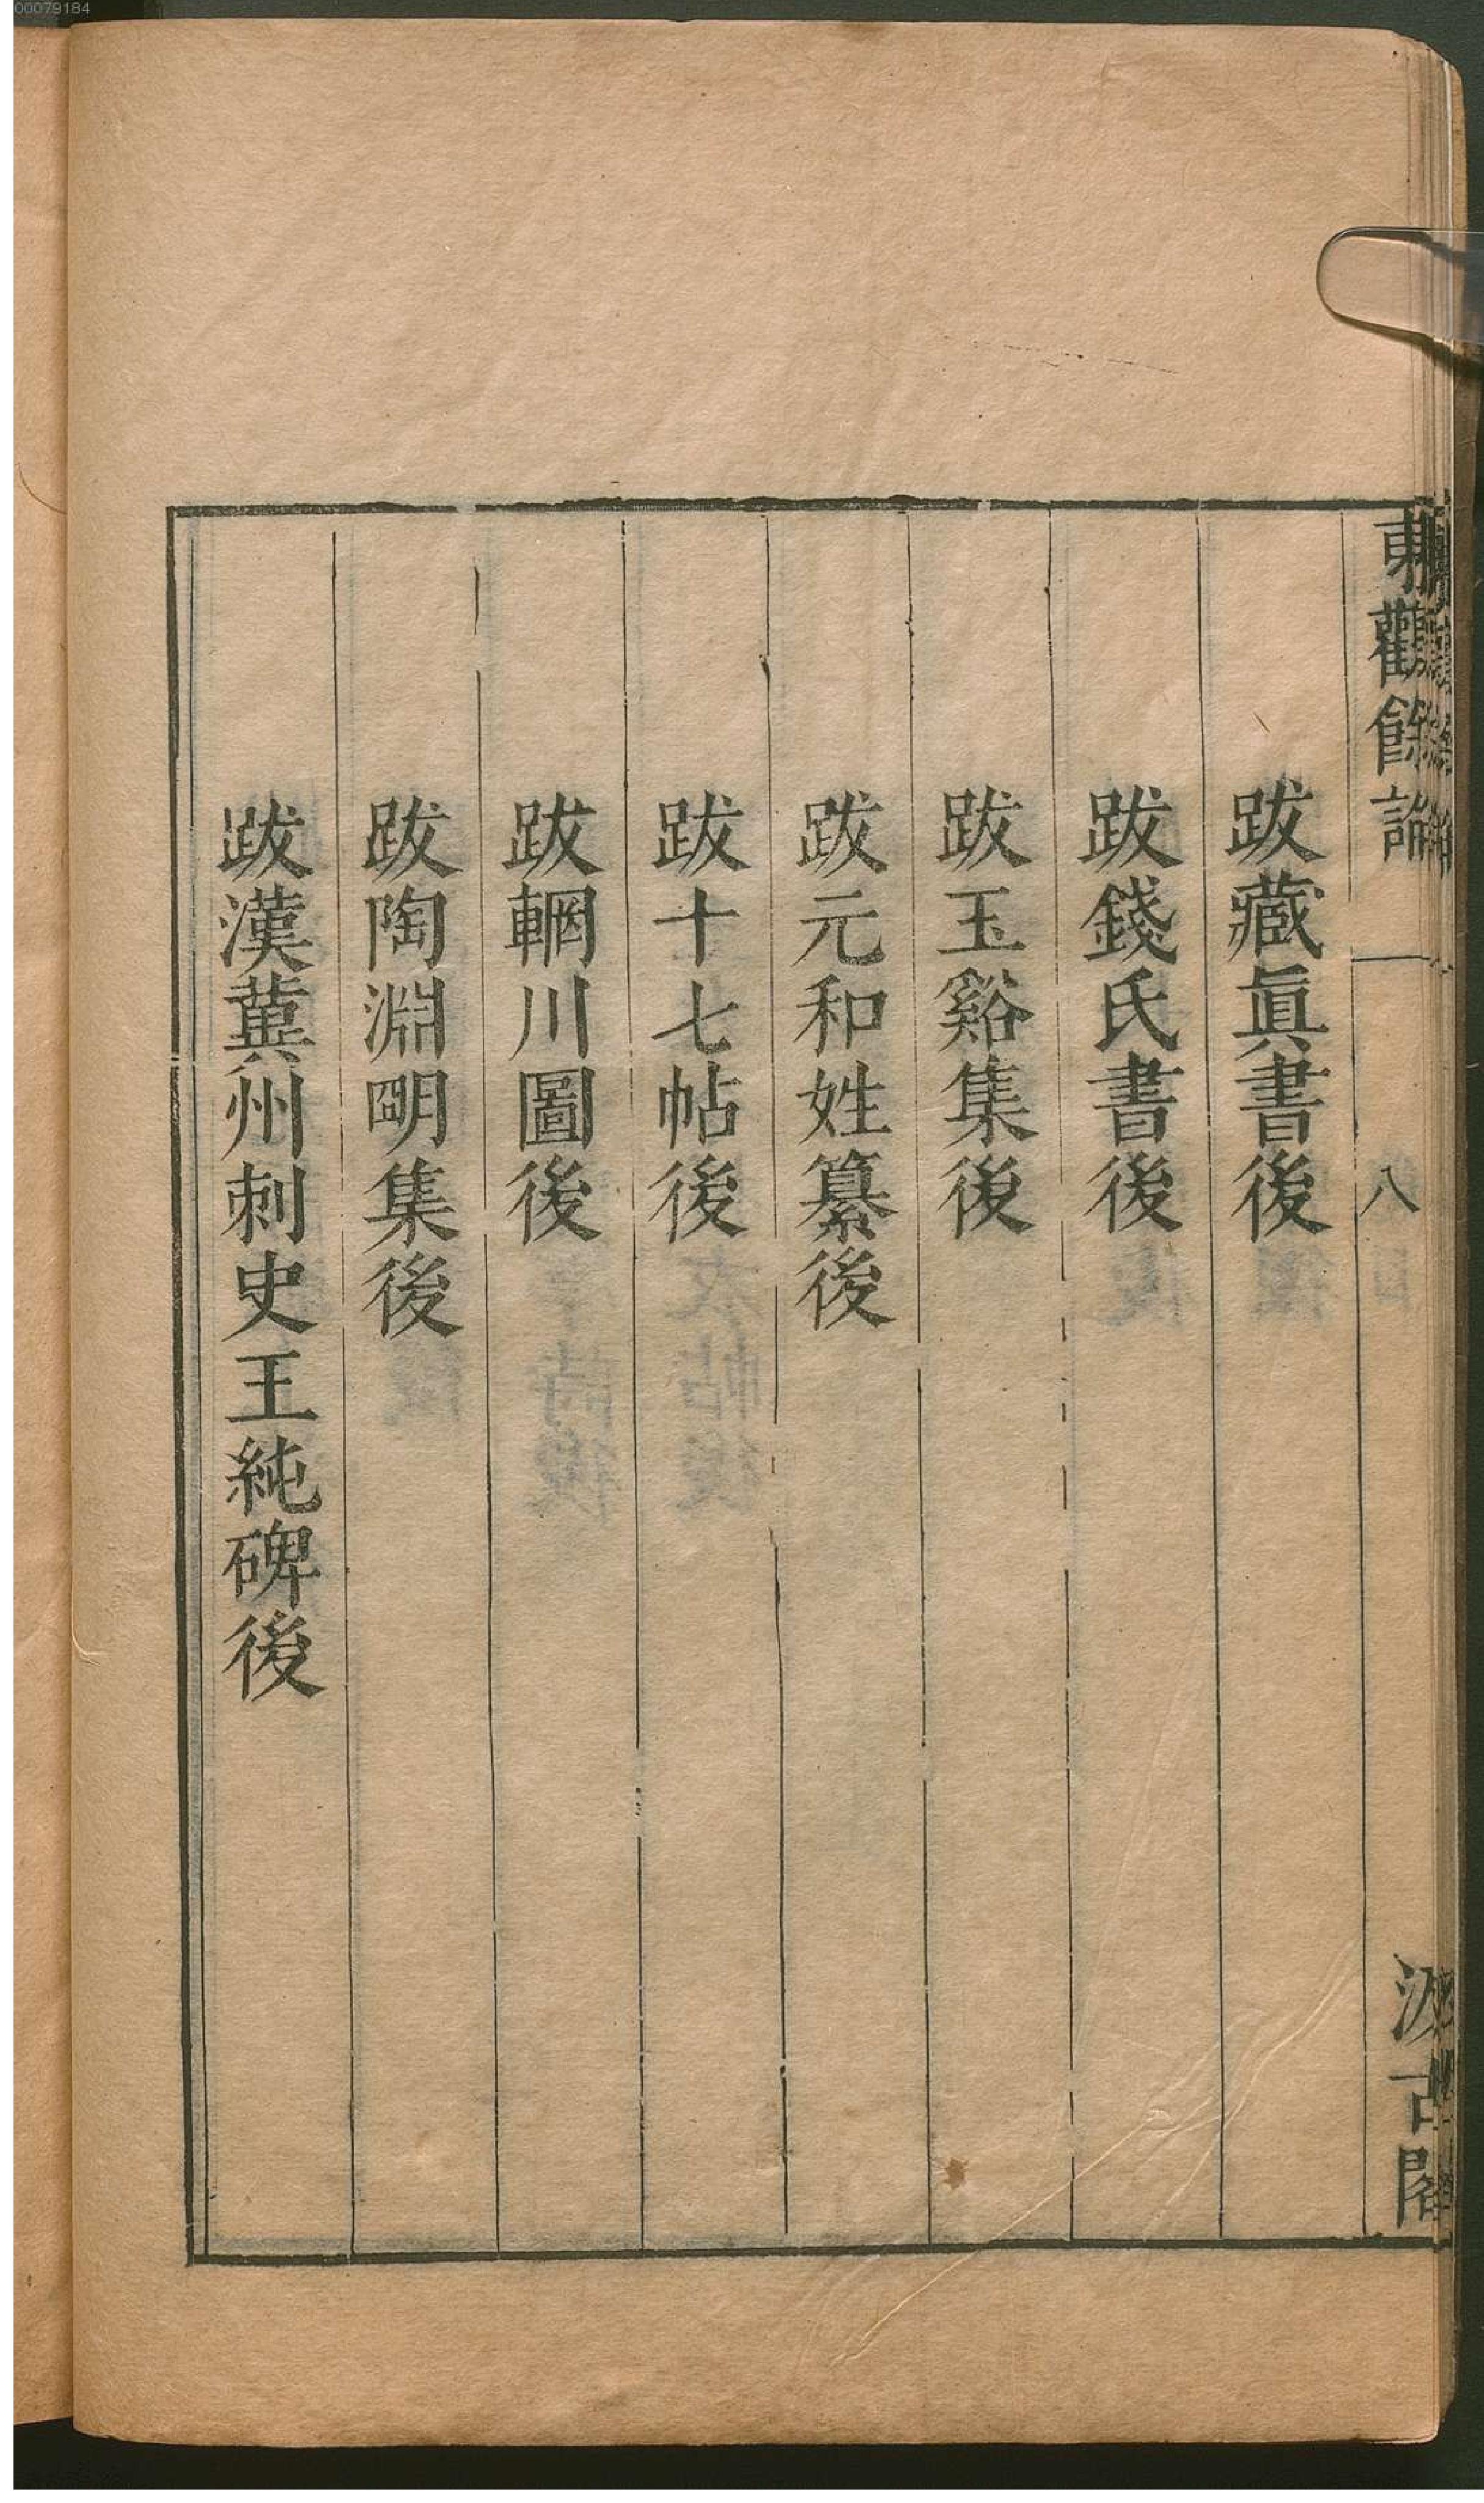 00079184
東觀餘論
八
汲古閣
跋藏眞書後
跋錢氏書後
跋玉谿集後
跋元和姓纂後
跋十七帖後
跋輞川圖後
跋陶淵明集後
跋漢冀州刺史王純碑後